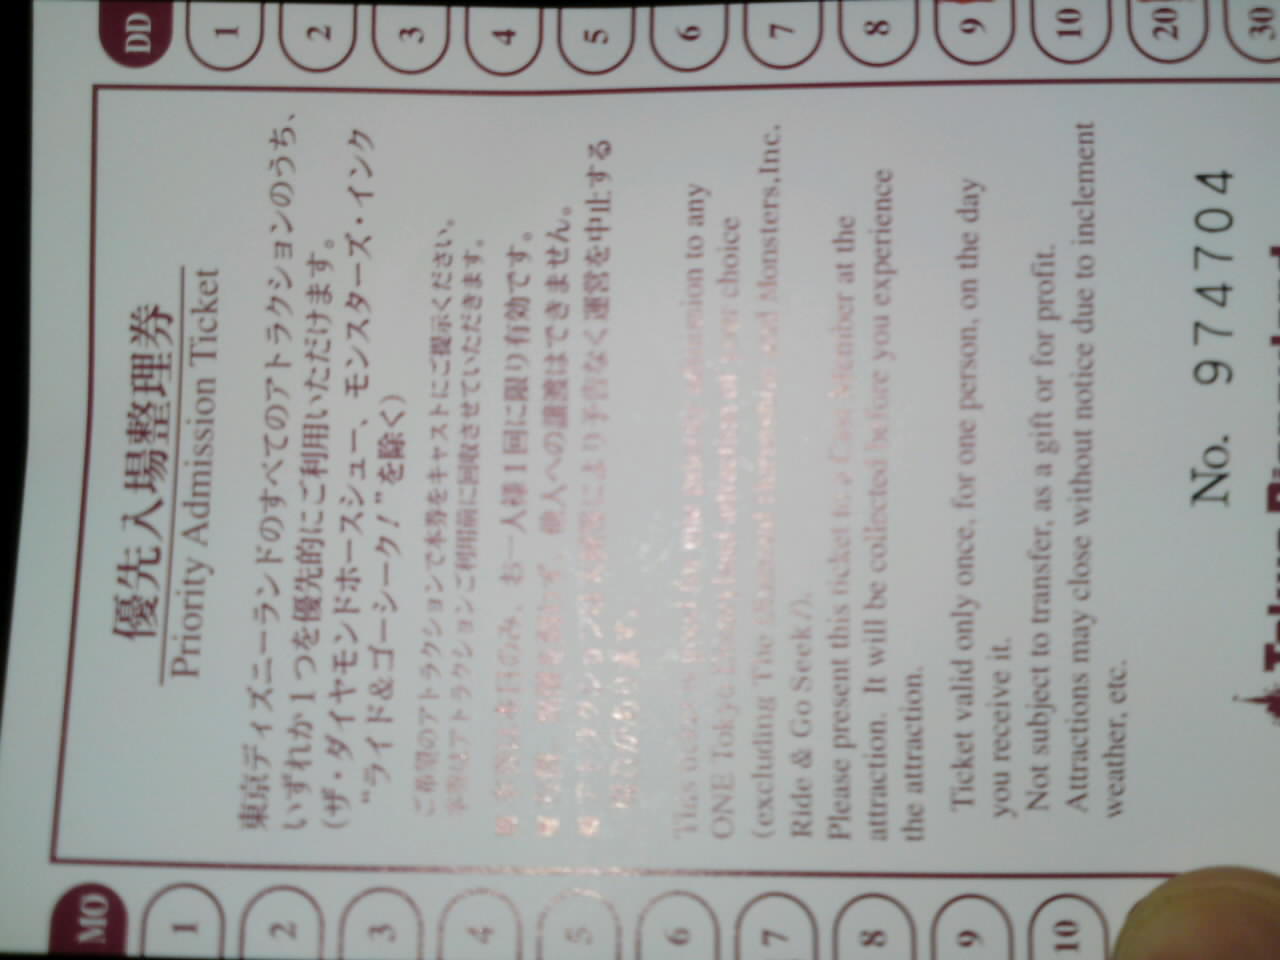 DD
1
2
3
4
5
6
7
8
9
10
20
30
優先入場整理券
Priority Admission Ticket
東京ディズニーランドのすべてのアトラクションのうち、
いずれか1つを優先的にご利用いただけます。
(ザ・ダイヤモンドホースシュー、モンスターズ・インク
“ライド&ゴーシーク!”を除く)
ご希望のアトラクションで本券をキャストにご提示ください。
本券はアトラクションご利用前に回収させていただきます。
本券は本日のみ、お一人様1回に限り有効です。
他人への譲渡はできません。
により予告なく運営を中止する
場合があります。
This ticket is good for one priority admission to any
ONE Tokyo Disneyland attraction of your choice
(excluding The Diamond Horseshoe and Monsters,Inc.
Ride & Go Seek!).
Please present this ticket to a Cast Member at the
attraction. It will be collected before you experience
the attraction.
Ticket valid only once, for one person, on the day
you receive it.
Not subject to transfer, as a gift or for profit.
Attractions may close without notice due to inclement
weather, etc.
No. 974704
Tokyo Disneyland
MO
1
2
3
4
5
6
7
8
9
10